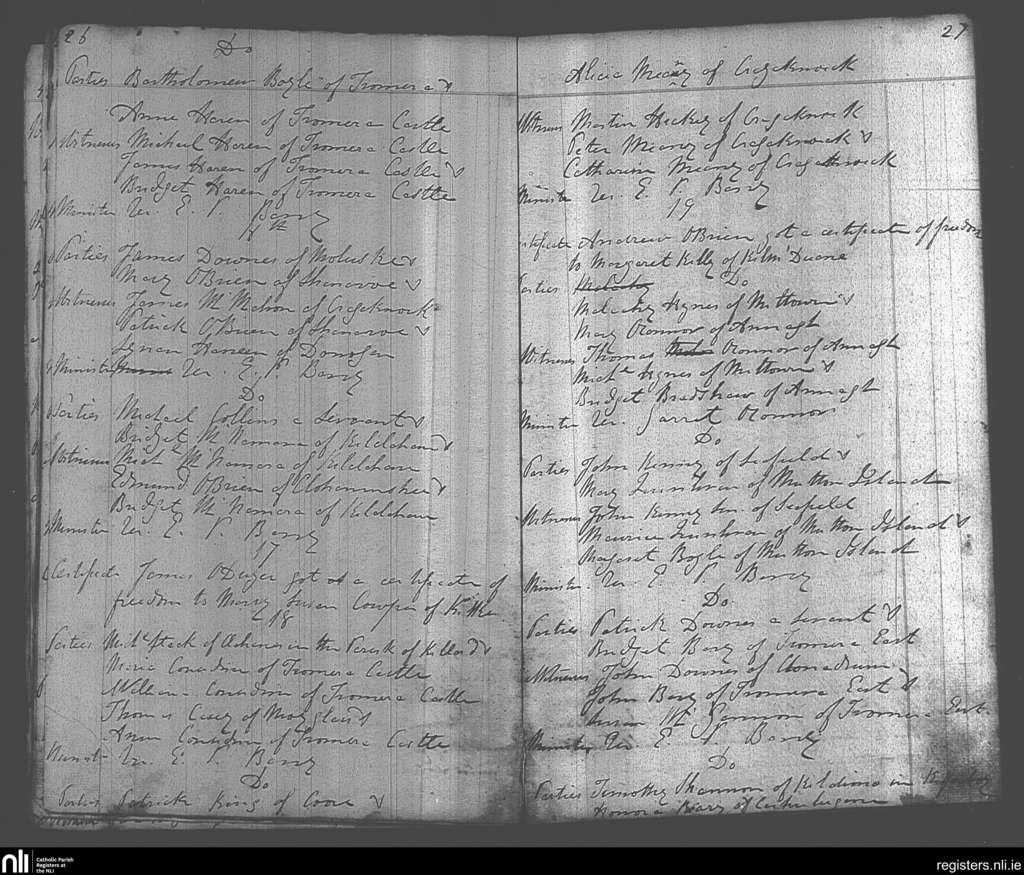 26
Do
Parties Bartholomew Boyle of Tromera &
Anne Haren of Tromera Castle
Witnesses Michael Haren of Tromera Castle
James Haren of Tromera Castle &
Bridget Haren of Tromera Castle
Minister Rev. E. P. Barry
Parties James Downes of Moluskey &
Mary OBrien of Shanavoe &
Witnesses James McMahon of Cragaknock
Patrick OBrien of Shanavoe &
of Donogan
Minister Rev. E. P. Barry
Do
Parties Michael Collins a Servant &
Bridget McNamara of Kildehan &
Witnesses Mich McNamara of Kildeham
Edmund OBrien of &
Bridget McNamara of Kildeham
Minister Rev. E. P. Barry
17
Certificate James ODwyer got a certificate of
freedom to Mary Cowper of
18
Parties Michl of in the Parish of Killard &
Maria Considin of Tromera Castle
William Considin of Tromera Castle
Thomas Casey of &
Ann Considin of Tromera Castle
Minister Rev. E. P. Barry
Do
Parties Patrick King of Coore &
27
Alicia Meany of Cragaknock
Witnesses Martin Hickey of Cragaknock
Peter Meany of Cragaknock &
Catharine Meany of Cragaknock
Minister Rev. E. P. Barry
19
Certificate Andrew OBrien got a certificate of freedom
to Margaret Kelly of Kilm Duane
Do
Parties
Malachy Hynes of Miltown &
Mary OConnor of Annagh
Witnesses Thomas OConnor of Annagh
Michl Hynes of Miltown &
Bridget Bradshaw of Annagh
Minister Rev. Garret OConnor
Do
Parties John Kenny of Seafield &
Mary of Mutton Island
Witnesses John Kenny Sen. of Seafield
Maurice of Mutton Island &
Margaret Boyle of Mutton Island
Minister Rev. E. P. Barry
Do
Parties Patrick Downes a servant &
Bridget Bary of Tromera East
Witnesses John Downes of Clonadrum
John Bary of Tromera East &
of Tromera East
Minister Rev. E. P. Barry
Do
Parties Timothy Shannon of Kildima in
Honora of
nli Catholic Parish
Registers at
the NLI
registers.nli.ie